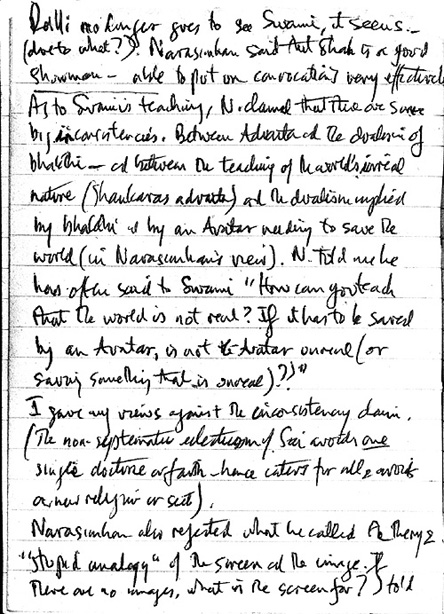 no longer goes to see Swami, it seems -
(due to what?). Narasimhan said that Shah is a good
showman - able to put on convocations very effectively
As to Swami's teaching, N. claimed that there are some
big inconsistencies. Between Advaita and the dualism of
bhakthi - and between the teaching of the world's unreal
nature (Shankaras advaita) and the dualism implied
by bhakthi & by an Avatar needing to save the
world (in Narasimhan's view). N. told me he
has often said to Swami "How can you teach
that the world is not real? If it has to be saved
by an Avatar, is not Avatar unreal (or
saving something that is unreal)?"
I gave my views against the inconsistency claim.
(The non-systematic eclecticism of Sai avoids one
single doctrine or faith - hence caters for all & avoids
a new religion or sect).
Narasimhan also rejected what he called
"stupid analogy" of the screen and the image. If
there are no images, what is the screen for?) told